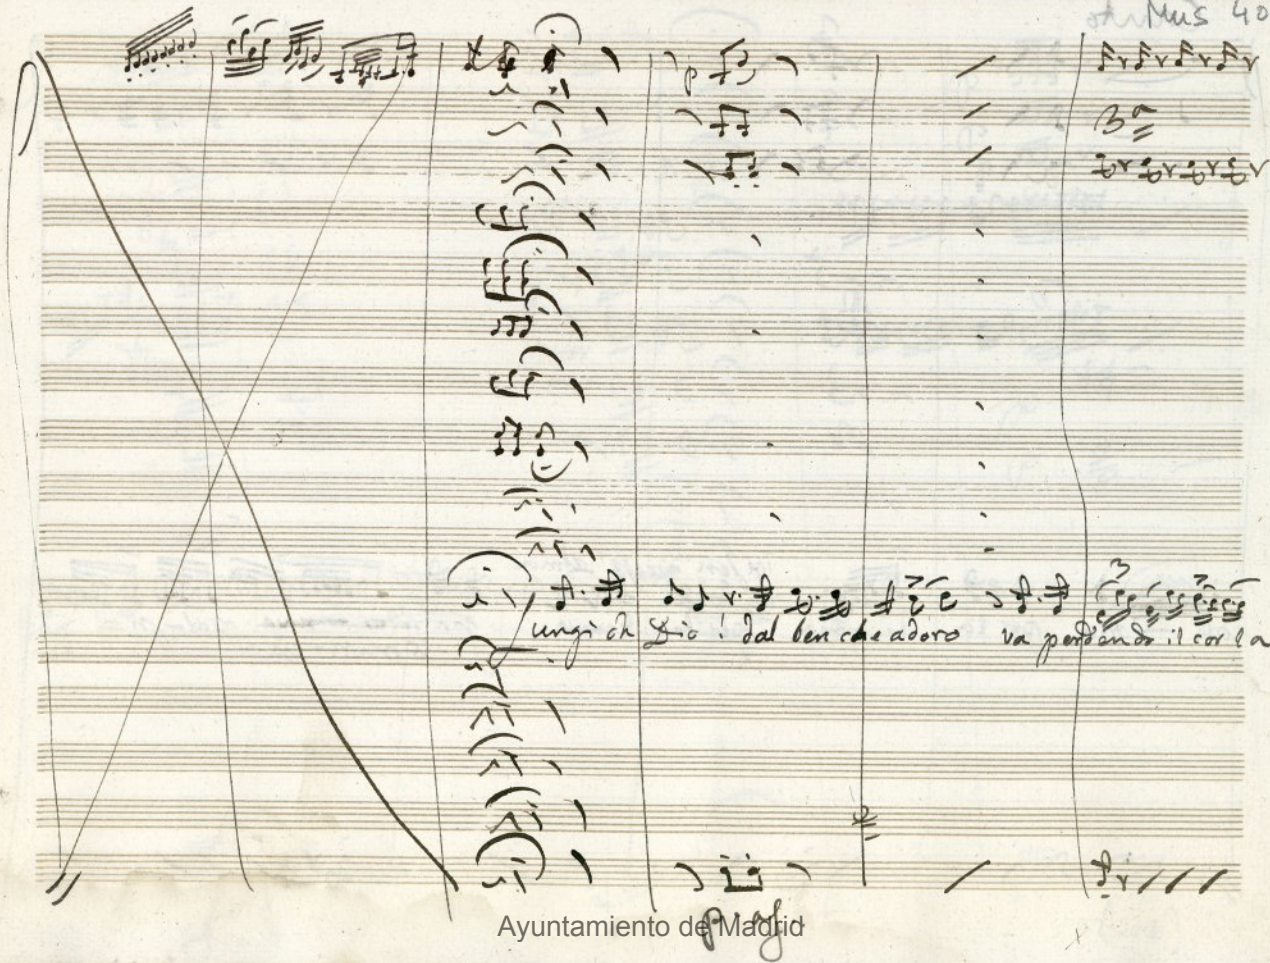 Mus 40
3ª
3
lungi oh Dio! dal ben che adoro va perdendo il cor la
Ayuntamiento de Madrid